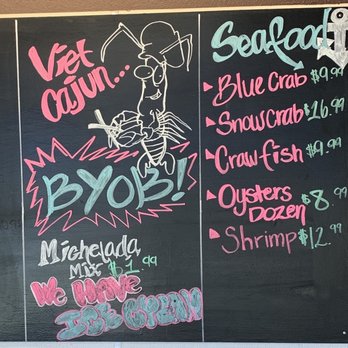 Viet
Cajun...
BYOB!
Michelada
Mix $1.99
We Have
Ice Cream
Seafood
Blue Crab $9.99
Snow Crab $16.99
Crawfish $9.99
Oysters
Dozen $8.99
Shrimp $12.99